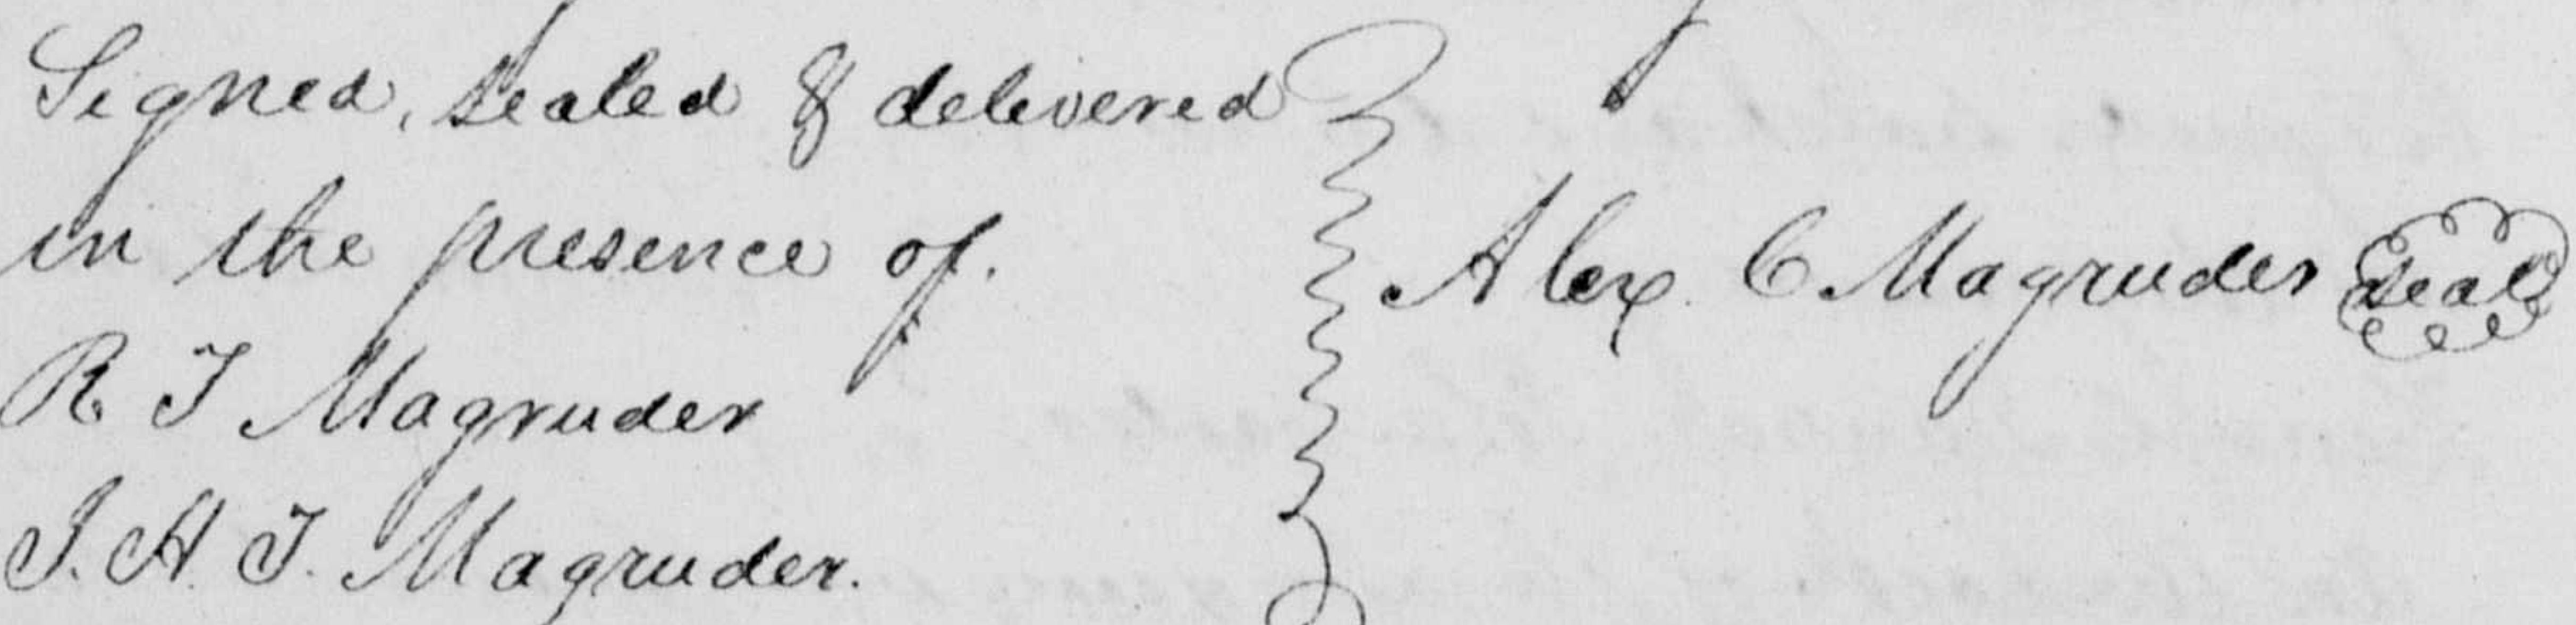 Signed, sealed & delivered
in the presence of.
R T Magruder
J. H. T. Magruder.
Alex. C Magruder seal